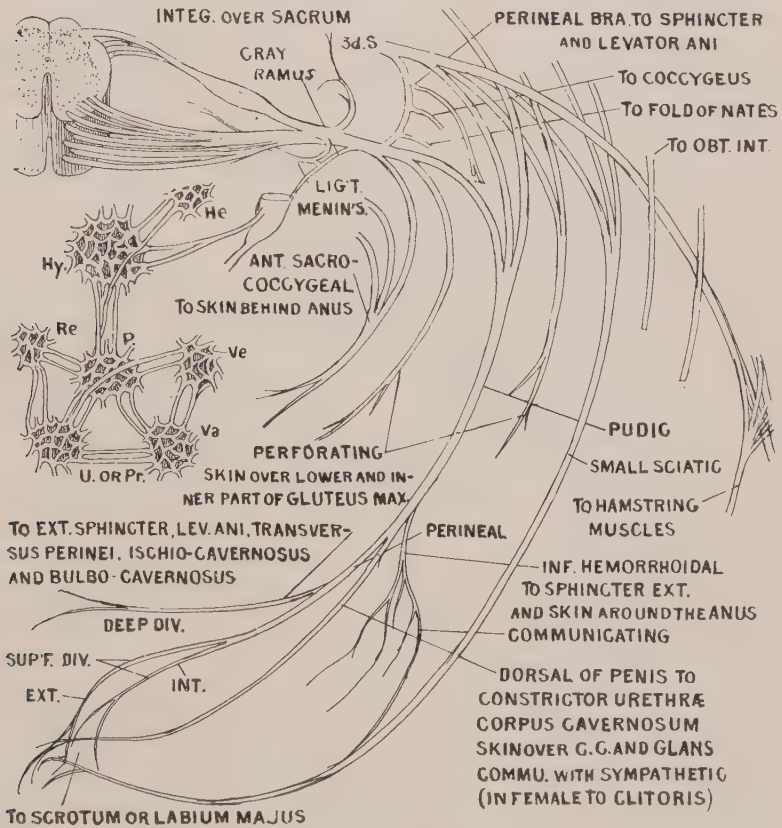 INTEG. OVER SACRUM
3d.S
PERINEAL BRA. TO SPHINCTER
AND LEVATOR ANI
GRAY
RAMUS
TO COCCYGEUS
TO FOLD OF NATES
TO OBT. INT.
LIG'T.
MENIN'S.
He
Hy.
ANT. SACRO-
COCCYGEAL
TO SKIN BEHIND ANUS
Re
P.
Ve
Va
U. OR Pr.
PERFORATING
SKIN OVER LOWER AND IN-
NER PART OF GLUTEUS MAX.
PUDIC
SMALL SCIATIC
TO HAMSTRING
MUSCLES
TO EXT. SPHINCTER, LEV. ANI, TRANSVER-
SUS PERINEI, ISCHIO-CAVERNOSUS
AND BULBO-CAVERNOSUS
PERINEAL
INF. HEMORRHOIDAL
TO SPHINCTER EXT.
AND SKIN AROUND THE ANUS
COMMUNICATING
DEEP DIV.
SUP'F. DIV.
EXT.
INT.
DORSAL OF PENIS TO
CONSTRICTOR URETHRÆ
CORPUS CAVERNOSUM
SKIN OVER C.C. AND GLANS
COMMU. WITH SYMPATHETIC
(IN FEMALE TO CLITORIS)
TO SCROTUM OR LABIUM MAJUS